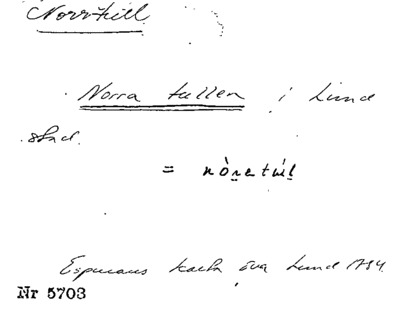 Norrtull
Norra tullen i Lund
stad.
= nòretúl
Espmans karta öva Lund 1784.
Nr 5703